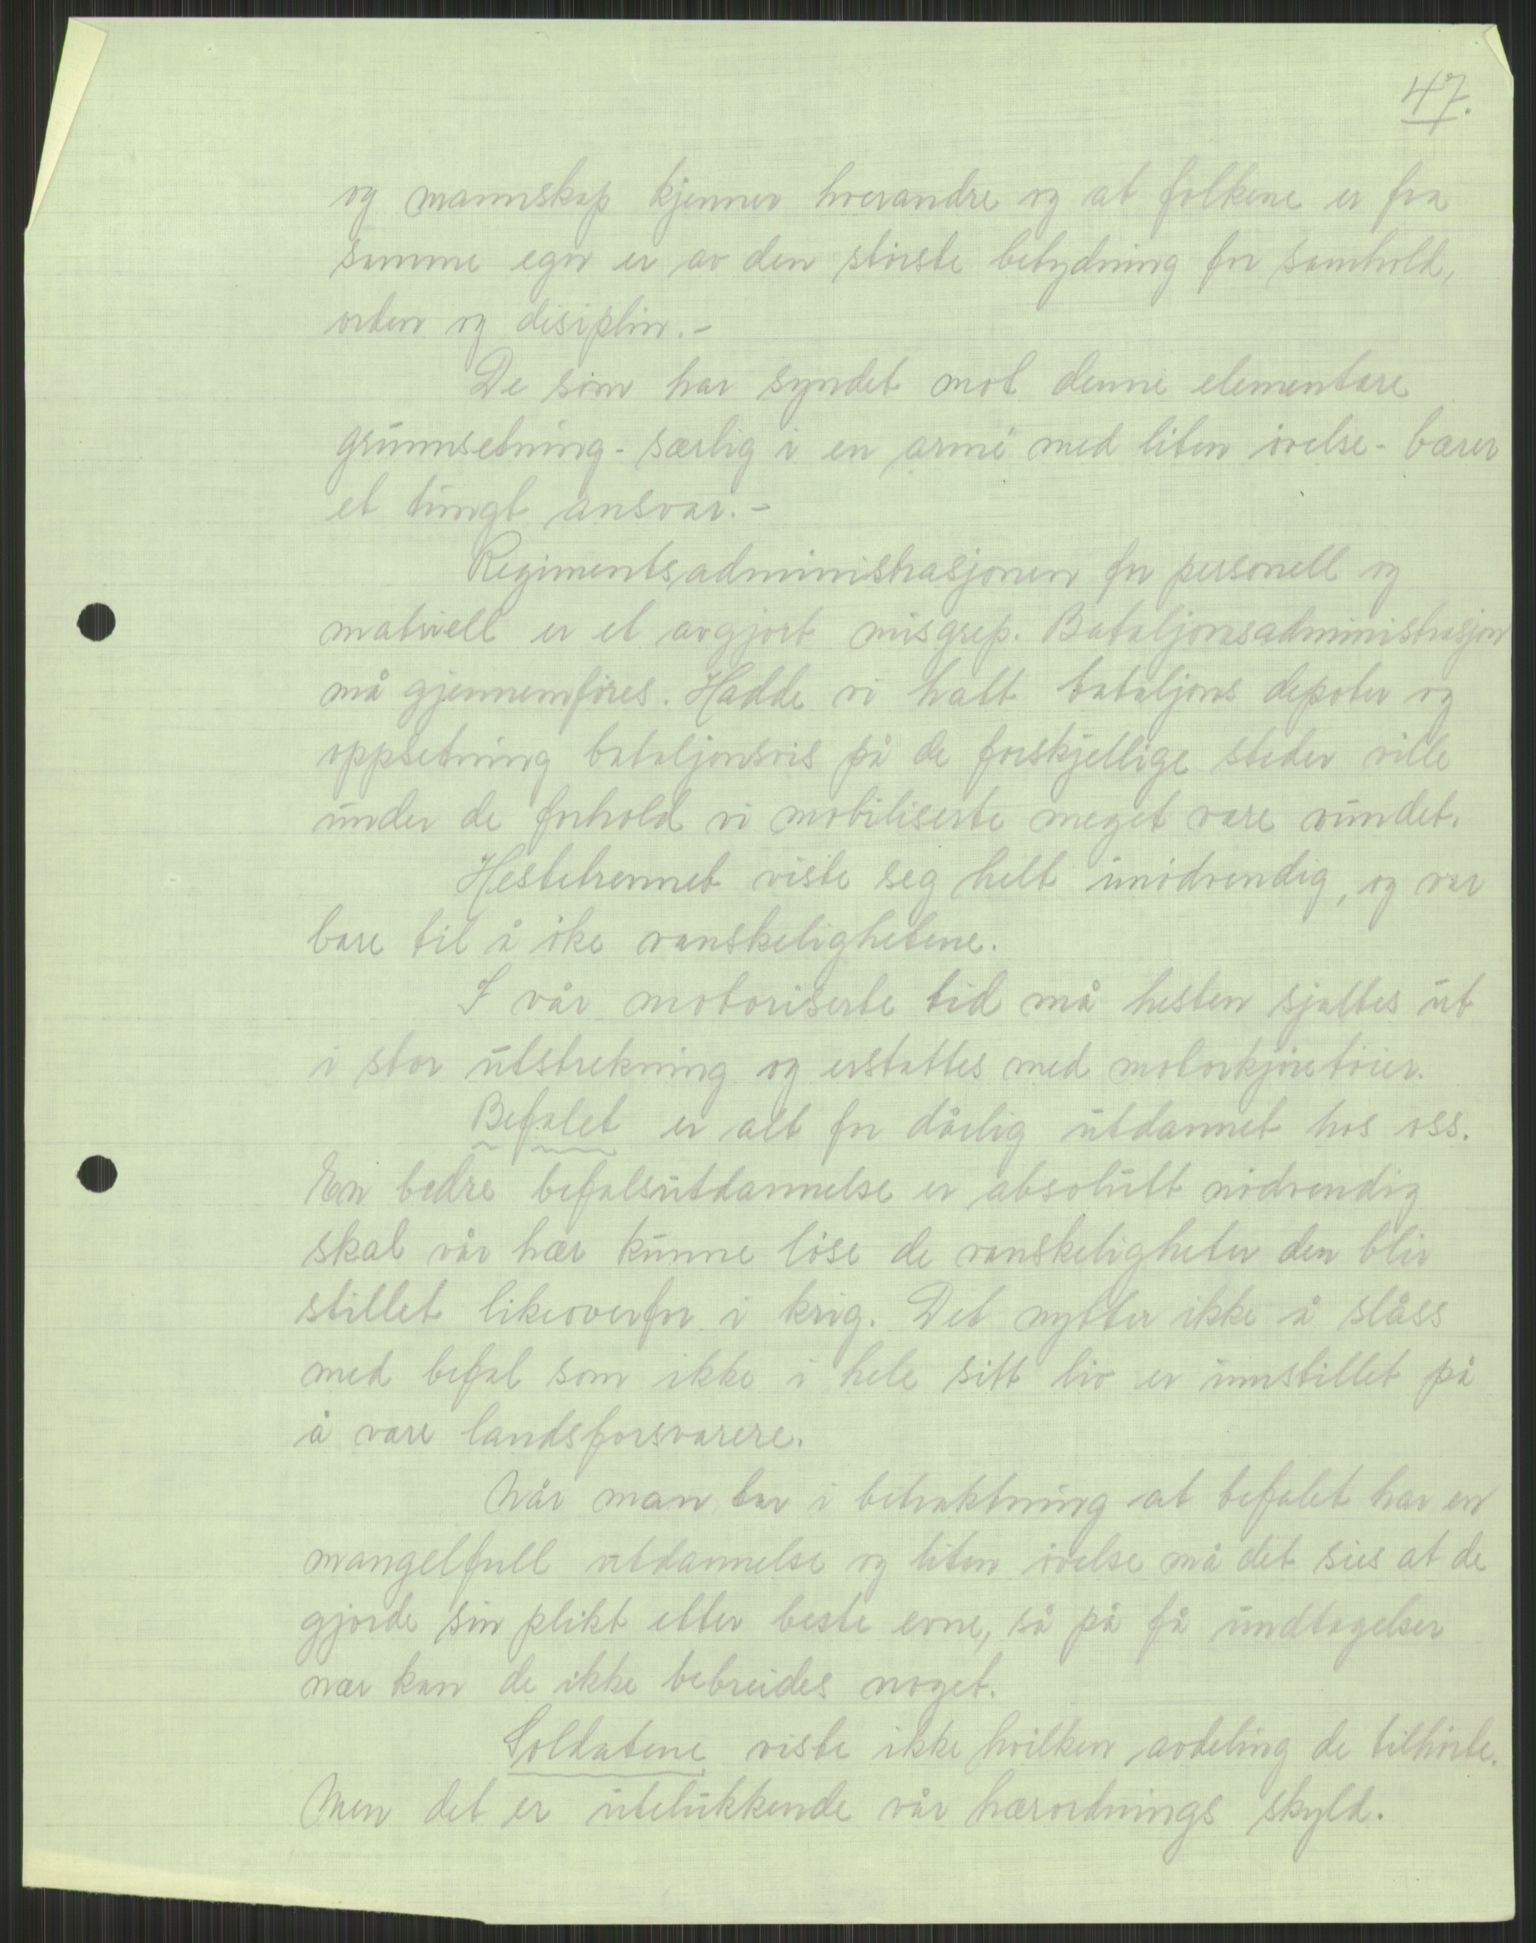 47.
og mannskap kjenner hverandre og at folkene er fra
samme egn er av den største betydning for samhold,
orden og disiplin.-
De som har syndet mot denne elementære
grunnsetning - særlig i en armé med liten øvelse - bærer
et tungt ansvar.-
Regimentsadministrasjonen for personell og
matriell er et avgjort misgrep. Bataljonsadministrasjon
må gjennemføres. Hadde vi hatt bataljons depoter og
oppsetning bataljonsvis på de forskjellige steder ville
under de forhold vi mobiliserte meget være vundet.
Hestetrennet viste seg helt unødvendig, og var
bare til å øke vanskelighetene.
I vår motoriserte tid må hesten sjaltes ut
i stor utstrekning og erstattes med motorkjøretøier.
Befalet er alt for dårlig utdannet hos oss.
En bedre befalsutdannelse er absolutt nødvendig
skal vår hær kunne løse de vanskeligheter den blir
stillet likeoverfor i krig. Det nytter ikke å slåss
med befal som ikke i hele sitt liv er innstillet på
å være landsforsvarere.
Når man tar i betraktning at befalet har en
mangelfull utdannelse og liten øvelse må det sies at de
gjorde sin plikt etter beste evne, så på få undtagelser
nær kan de ikke bebreides noget.
Soldatene viste ikke hvilken avdeling de tilhørte.
Men det er utelukkende vår hærordnings skyld.